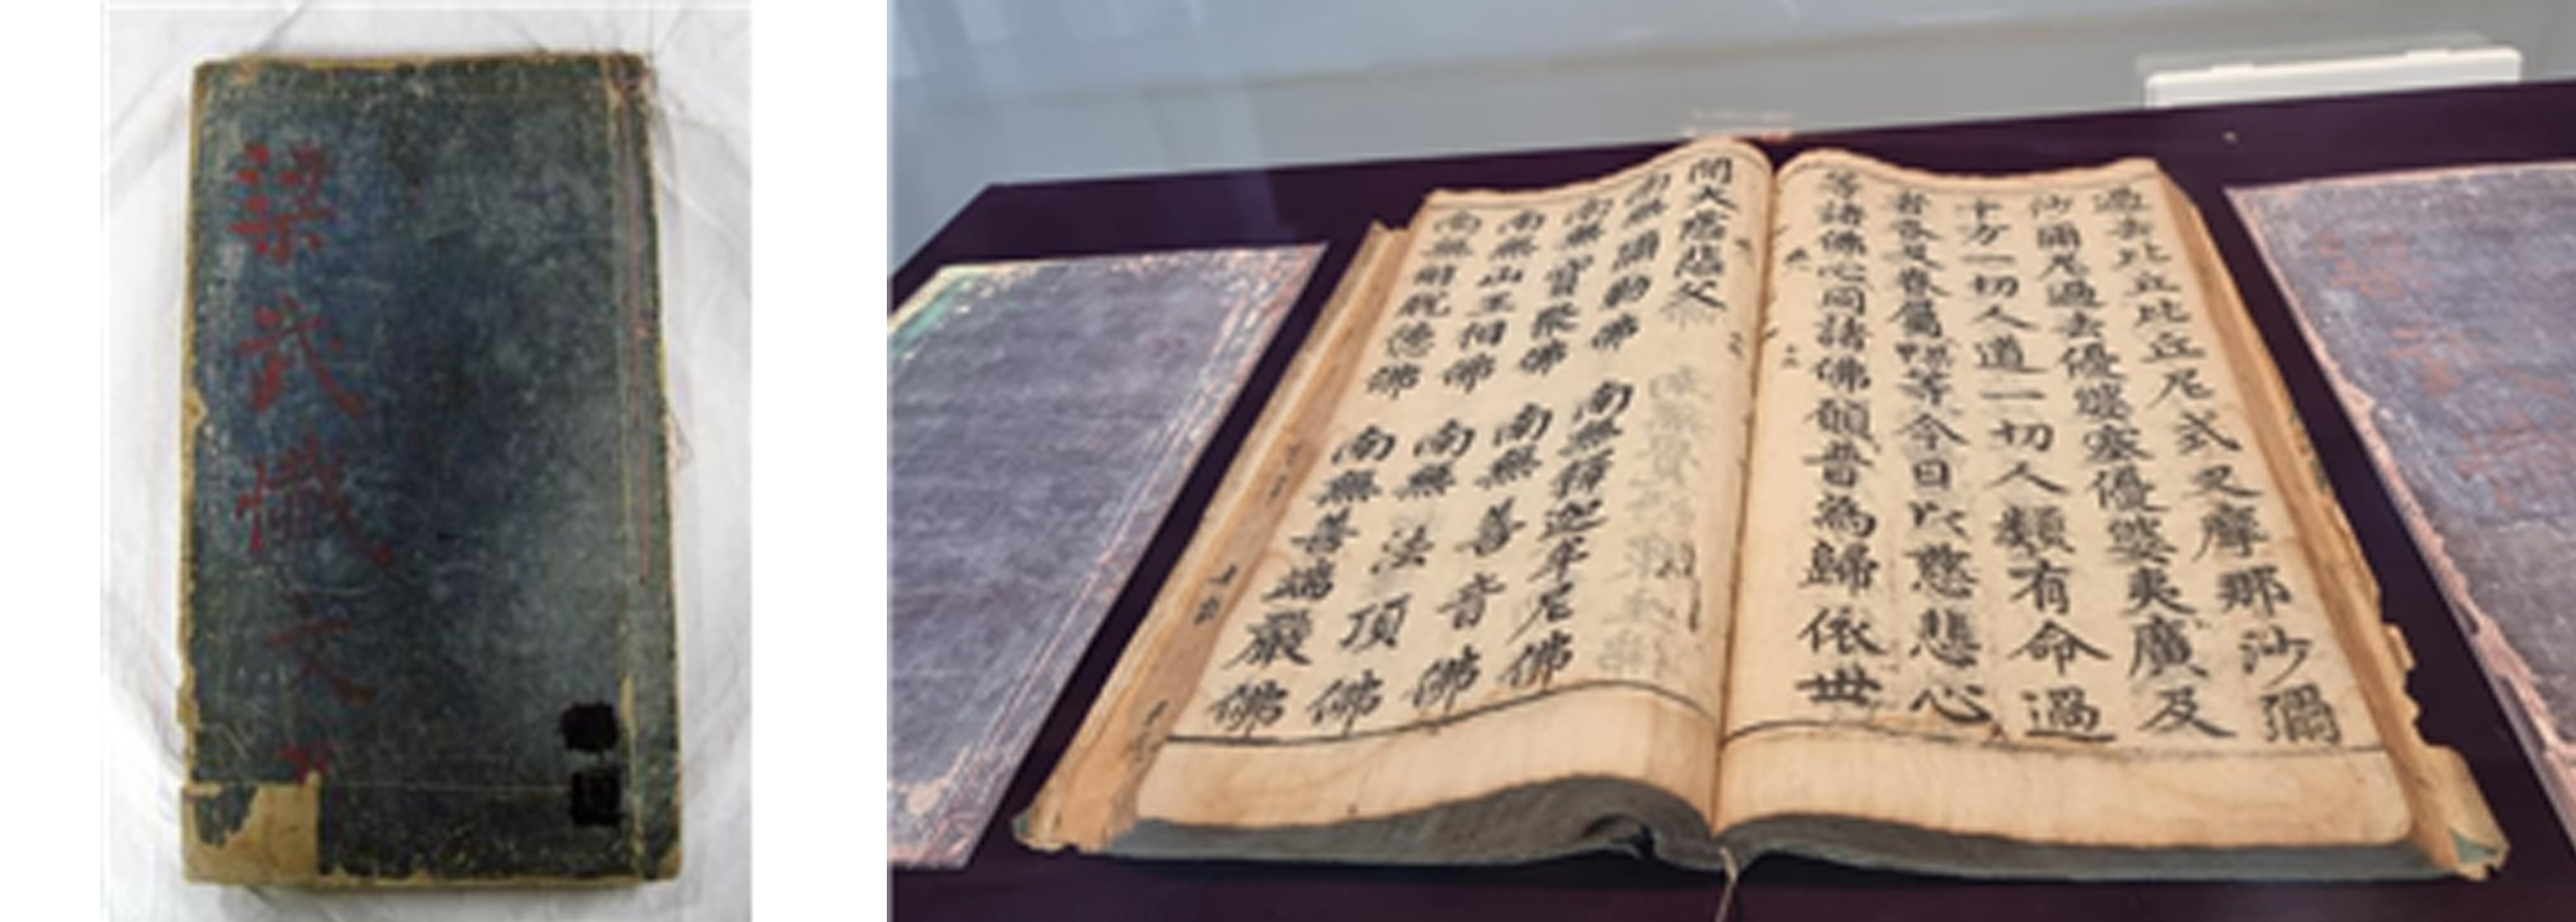 梁武懺文
過去比丘比丘尼式叉摩那沙彌
沙彌尼過去優婆塞優婆夷廣及
十方一切人道一切人類有命過
者各及眷屬等今日以慈悲心
等諸佛心同諸佛願普為歸依世
間大慈悲父
南無彌勒佛 南無釋迦牟尼佛
南無寶聚佛 南無善音佛
南無山王相佛 南無法頂佛
南無解脫德佛 南無善端嚴佛